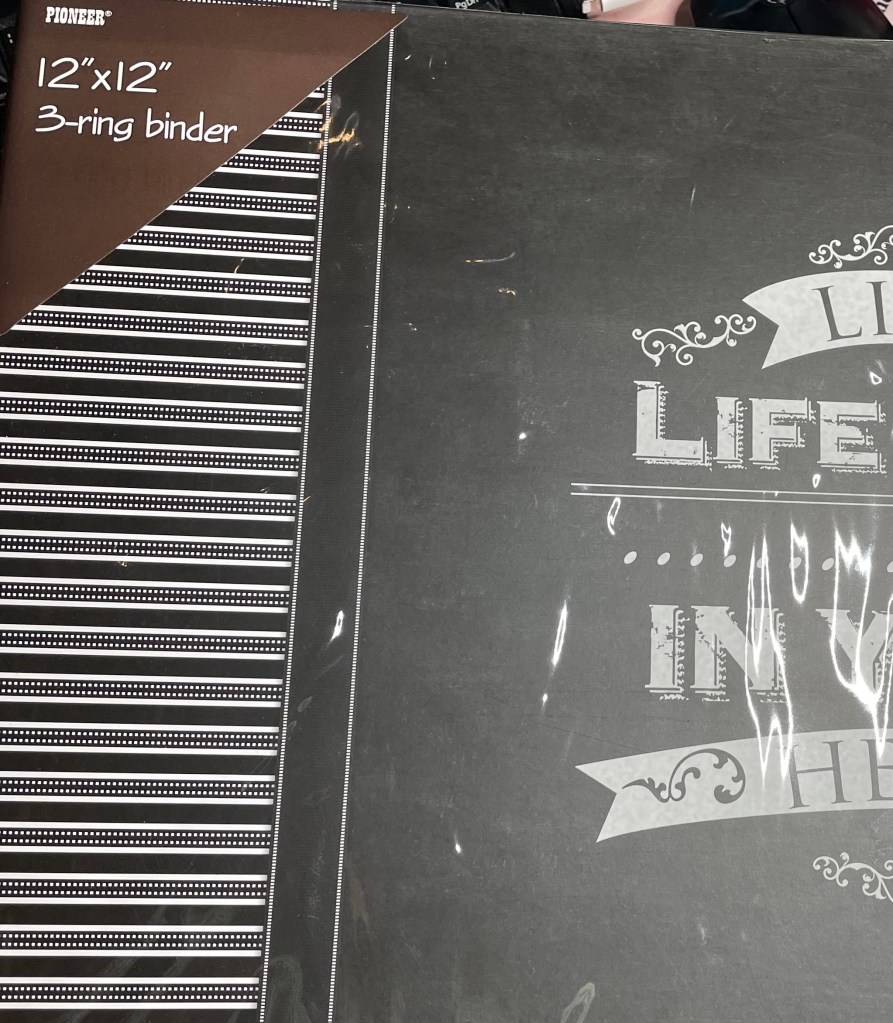 PgDn
PIONEER®
12"x12"
3-ring binder
LI
LIFE
IN Y
HE